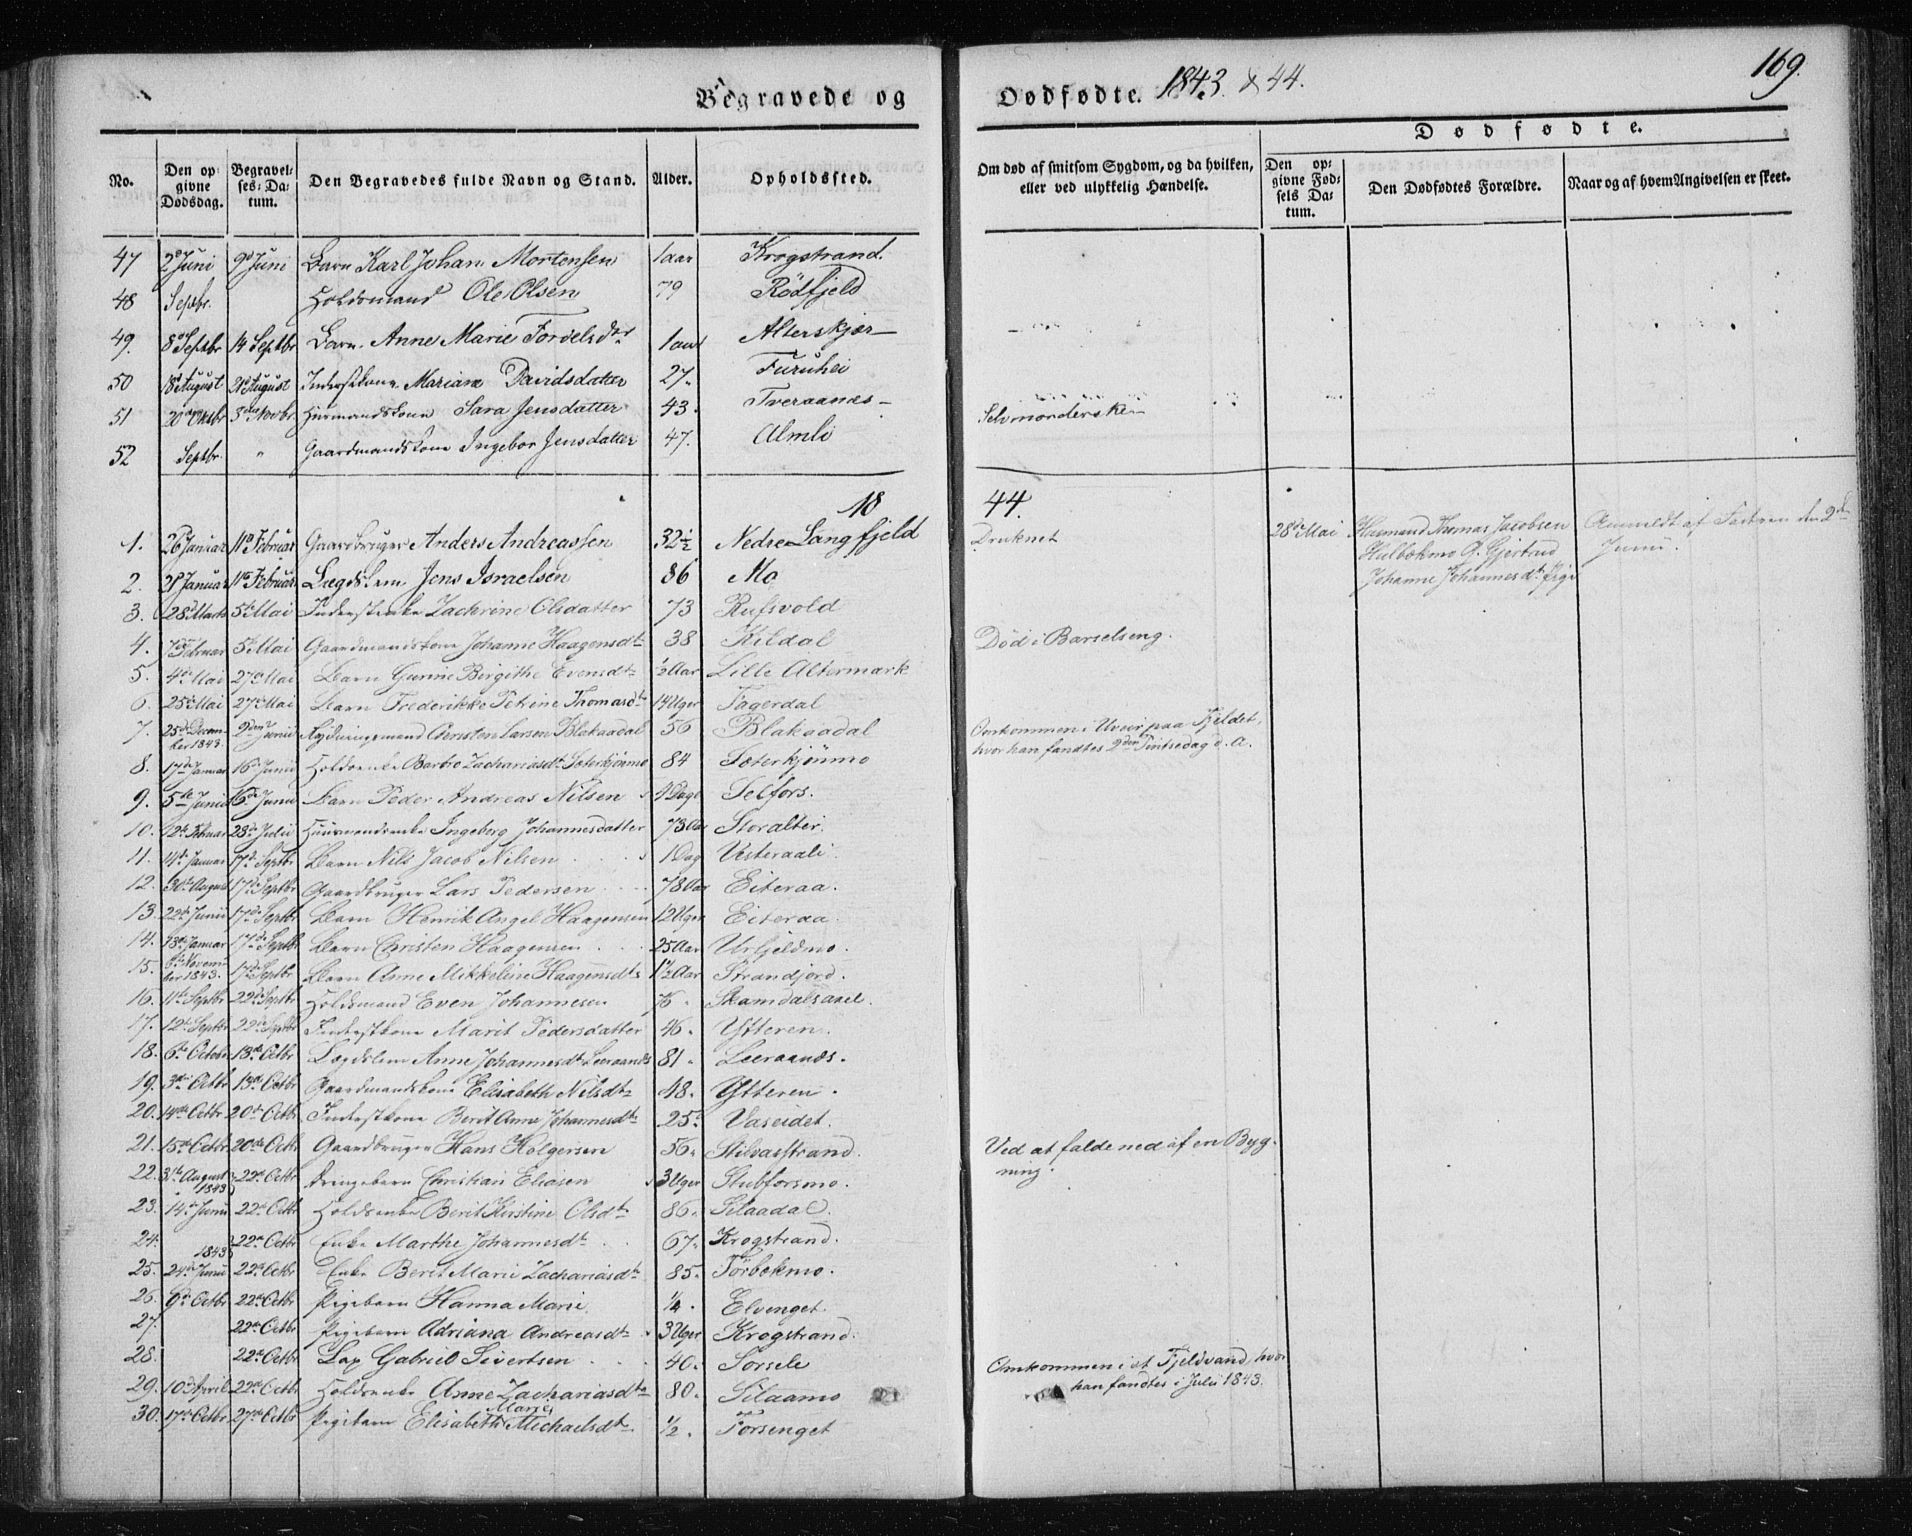 Begravede og Dødfødte. 1843 & 44. 169.
Dødfødte.
No. Den opgivne Dødsdag. Begravelses-Datum. Den Begravedes fulde Navn og Stand. Alder. Opholdssted. Om død af smitsom Sygdom, og da hvilken, eller ved ulykkelig Hændelse. Den opgivne Fødsels Datum. Den Dødfødtes Forældre. Naar og af hvem Angivelsen er skeet.
47 2d Juni 9d Juni Barn Karl Johan Mortensen 1 aar Krogstrand.
48 Septbr. Holdsmand Ole Olsen 79 Rödfjeld
49. 8d Septbr 14 Septbr Barn Anne Marie Tordelsdtr 1 aar Alterskjær
50 18 August 21 August Inderstkone Mariane Davidsdatter 27. Furuhei
51 20de Oktbr 3die Novbr. Huusmandskone Sara Jensdatter 43. Tveraanes Selvmorderske
52 Septbr. " Gaardmandskone Ingebor Jensdatter 47. Almli
18 44.
1. 26 Januar 11d Februar Gaardbruger Anders Andreassen 32½ Nedre Langfjeld Druknet 28de Mai Huusmand Thomas Jacobsen Anmeldt af Faderen den 2den
Hulbækmo & Gjertrud Junii.
Johanne Johannesdt. Pige
2. 21 Januar 11te Februar Lægdslem Jens Israelsen 86 Mo
3. 28d Marts 5te Mai Inderstenke Zachrine Olsdatter 73 Rufsvold
4. 7de Februar 5te Mai Gaardmandskone Johanne Haagensdt. 38 Kildal Död i Barselseng.
5. 4de Mai 27de Mai Barn Gurine Birgithe Evensdt. ½ Aar Lille Altermark
6. 25de Mai 27de Mai Barn Frederikke Petrine Thomasdt. 14 Uger Fagerdal
7. 25de December 1843. 2den Junii Rydningsmand Christen Larsen Blakaadal 56 Blakaadal Omkommen i Uveir paa Fjeldet,
hvor han fandtes 2den Pintsedag d. A.
8. 17d Januar 16d Junii Holdsenke Barbro Zachariasdt. Sæterkjønmo 84 Sæterkjönmo
9. 5te Junii 16d Junii Barn Peder Andreas Nilsen 4 Dage Selfors.
10. 12te Februar 28de Julii Huusmandsenke Ingeborg Johannesdatter 73 Aar Storalter.
11. 14de Januar 17d Septbr Barn Nils Jacob Nilsen 1 Dag Vesteraali.
12. 30te August 17d Septbr Gaardbruger Lars Pedersen 78 Aar Eiteraa.
13. 22de Junii 17d Septbr Barn Henrik Angel Haagensen 12 Uger Eiteraa.
14. 18de Januar 17d Septbr Barn Christen Haagensen 25 Aar Urfjeldmo.
15. 6te November 1843. 17d Septbr Barn Anne Mikkeline Haagensdt. 1½ Aar Strandjord.
16. 11te Septbr 22de Septbr Holdsmand Even Johannesen 76 Skamdalsaxel.
17. 12te Septbr 22de Septbr Inderstkone Marit Pedersdatter 46. Ytteren.
18. 6te Octobr 13de Octbr Lægdslem Anne Johannesdt. Leeraanæs 81. Leeraanæs.
19. 3die Octbr 13de Octbr Gaardmandskone Elisabeth Nilsdt. 48. Ytteren.
20. 14de Octbr 20de Octbr Inderstkone Berit Anne Johannesdt. 25. Vaseidet.
21. 15de Octbr 20de Octbr Gaardbruger Hans Holgersen 56. Stilvasstrand. Ved at falde ned af en Byg-
ning.
22. 31te August 1843 22de Octbr Drengebarn Christian Eliasen 3 Uger Stubforsmo.
23. 14de Junii 22de Octbr Holdsenke Berit Kirstine Olsdt. 86. Silaadal.
24. 1843 22de Octbr Enke Marthe Johannesdt. 67. Krogstrand.
25. 24de Junii 22de Octbr Enke Berit Marie Zachariasdt. 85. Törbækmo.
26. 9de Octbr 22de Octbr Pigebarn Hanna Marie ¼. Elvenget.
27. 22de Octbr Pigebarn Adriana Andreasdt. 3 Uger Krogstrand.
28. 22de Octbr Lap Gabriel Sivertsen 40. Sorsele Omkommen i et Fjeldvand, hvor
han fandtes i Julii 1843.
29. 10d April 22de Octbr Holdsenke Anne Zachariasdt. 80. Silaamo
30. 17de Octbr 27de Octbr Pigebarn Elisabeth Marie Michaelsdt. ½. Forsenget